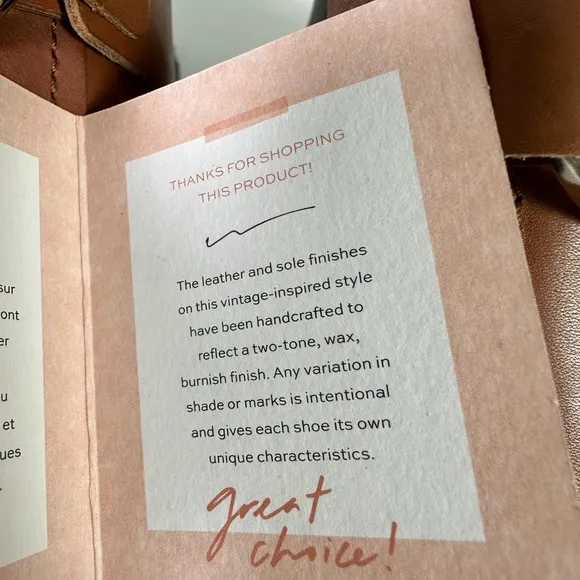 sur
ont
er
u
et
ues
THANKS FOR SHOPPING
THIS PRODUCT!
The leather and sole finishes
on this vintage-inspired style
have been handcrafted to
reflect a two-tone, wax,
burnish finish. Any variation in
shade or marks is intentional
and gives each shoe its own
unique characteristics.
great
choice!